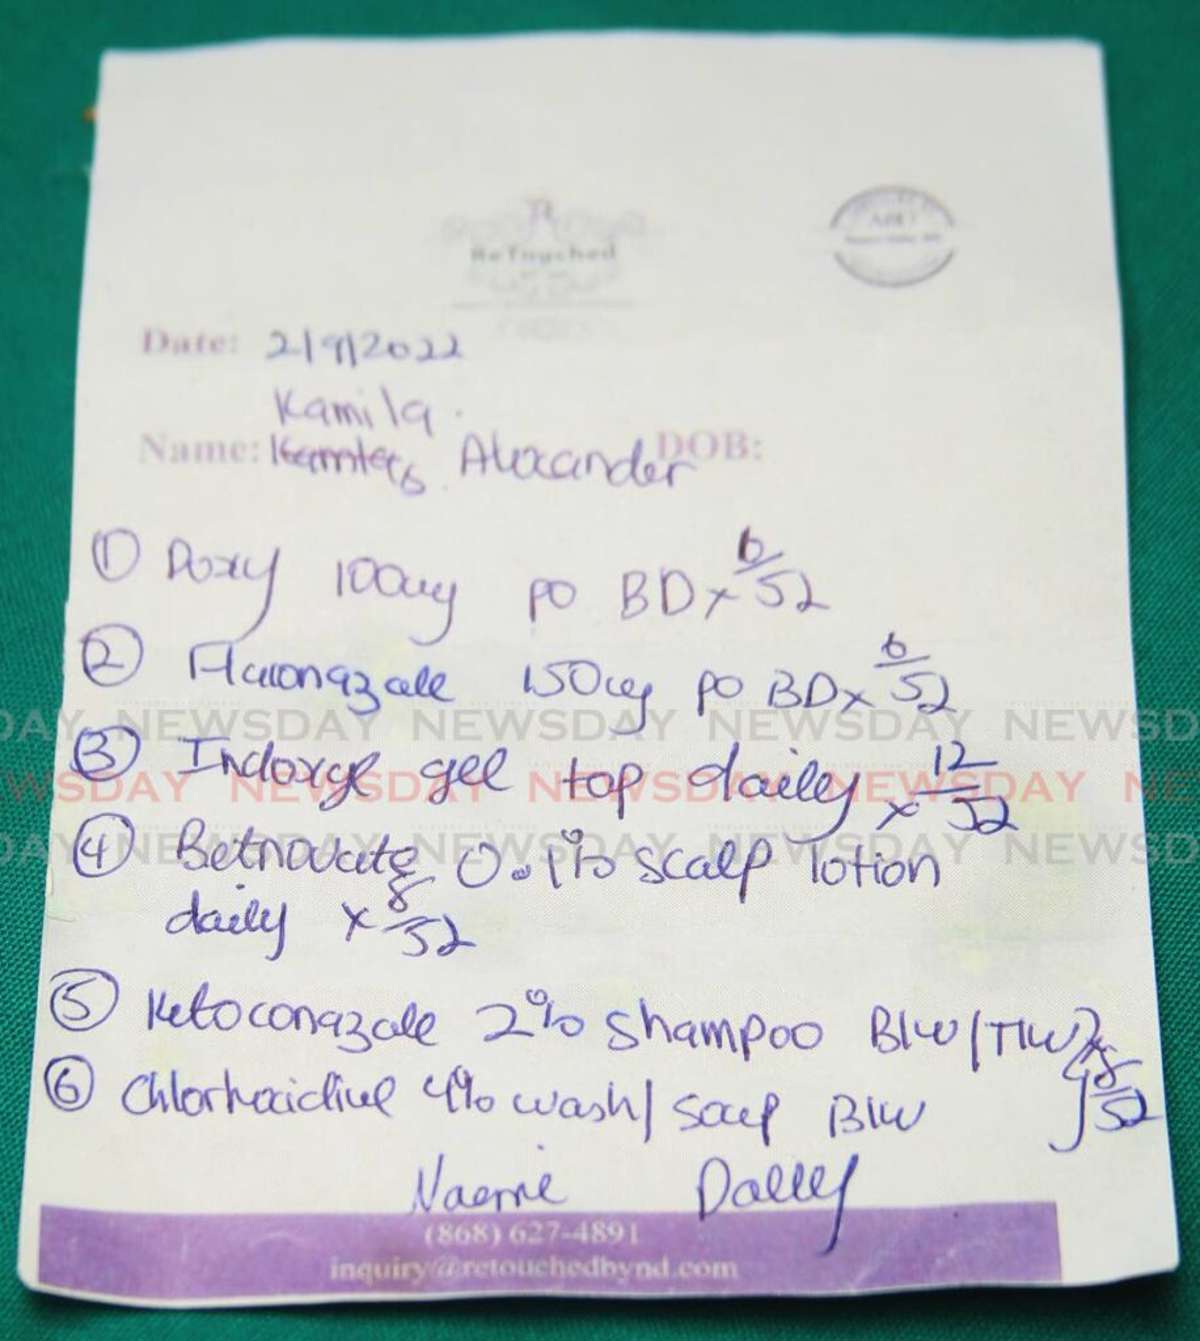 ReTouched
Date: 2/9/2022
Kamila
Name: Alexander DOB:
① Doxy 100mg po BD x 6/52
② Fluconazole 150mg po BD x 6/52
③ Indoxyl gel top daily x 12/52
④ Betnovate 0.1% scalp lotion
daily x 8/52
⑤ Ketoconazole 2% shampoo BIW/TIW } x 8/52
⑥ Chlorhexidine 4% wash/soap BIW
(868) 627-4891
inquiry@retouchedbynd.com
NEWSDAY NEWSDAY NEWSDAY
NEWSDAY NEWSDAY NEWSDAY
NEWSDAY NEWSDAY NEWSDAY